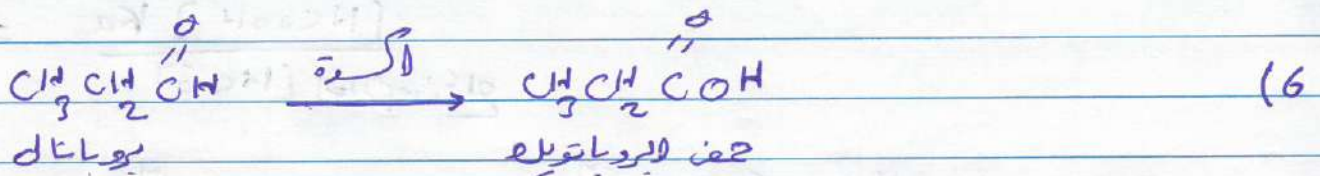 (6
O O
CH3CH2CH أكسدة → CH3CH2COH
بروبانال حمض البروبانويك